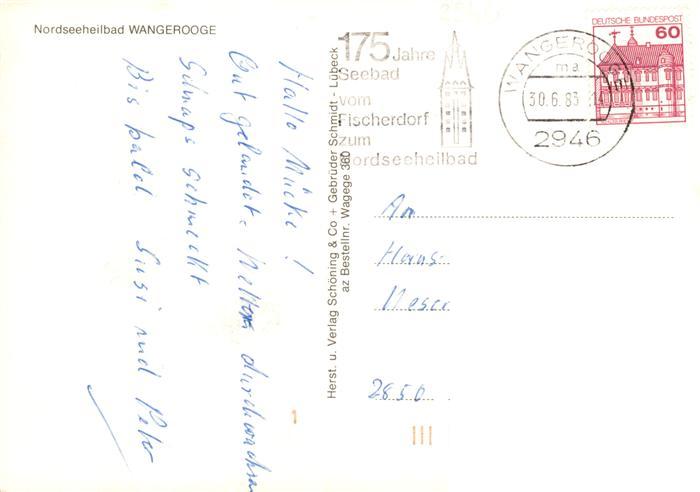 Nordseeheilbad WANGEROOGE
Hallo Mücke!
Gut gelandet. Wetter durchwachsen
Schnaps schmeckt
Bis bald Susi und Peter
Herst. u. Verlag Schöning & Co + Gebrüder Schmidt - Lübeck
az Bestellnr. Wagege 360
175 Jahre
Seebad
vom
Fischerdorf
zum
Nordseeheilbad
WANGEROOGE
30.6.83
2946
DEUTSCHE BUNDESPOST
60
An
Hans
2850
1